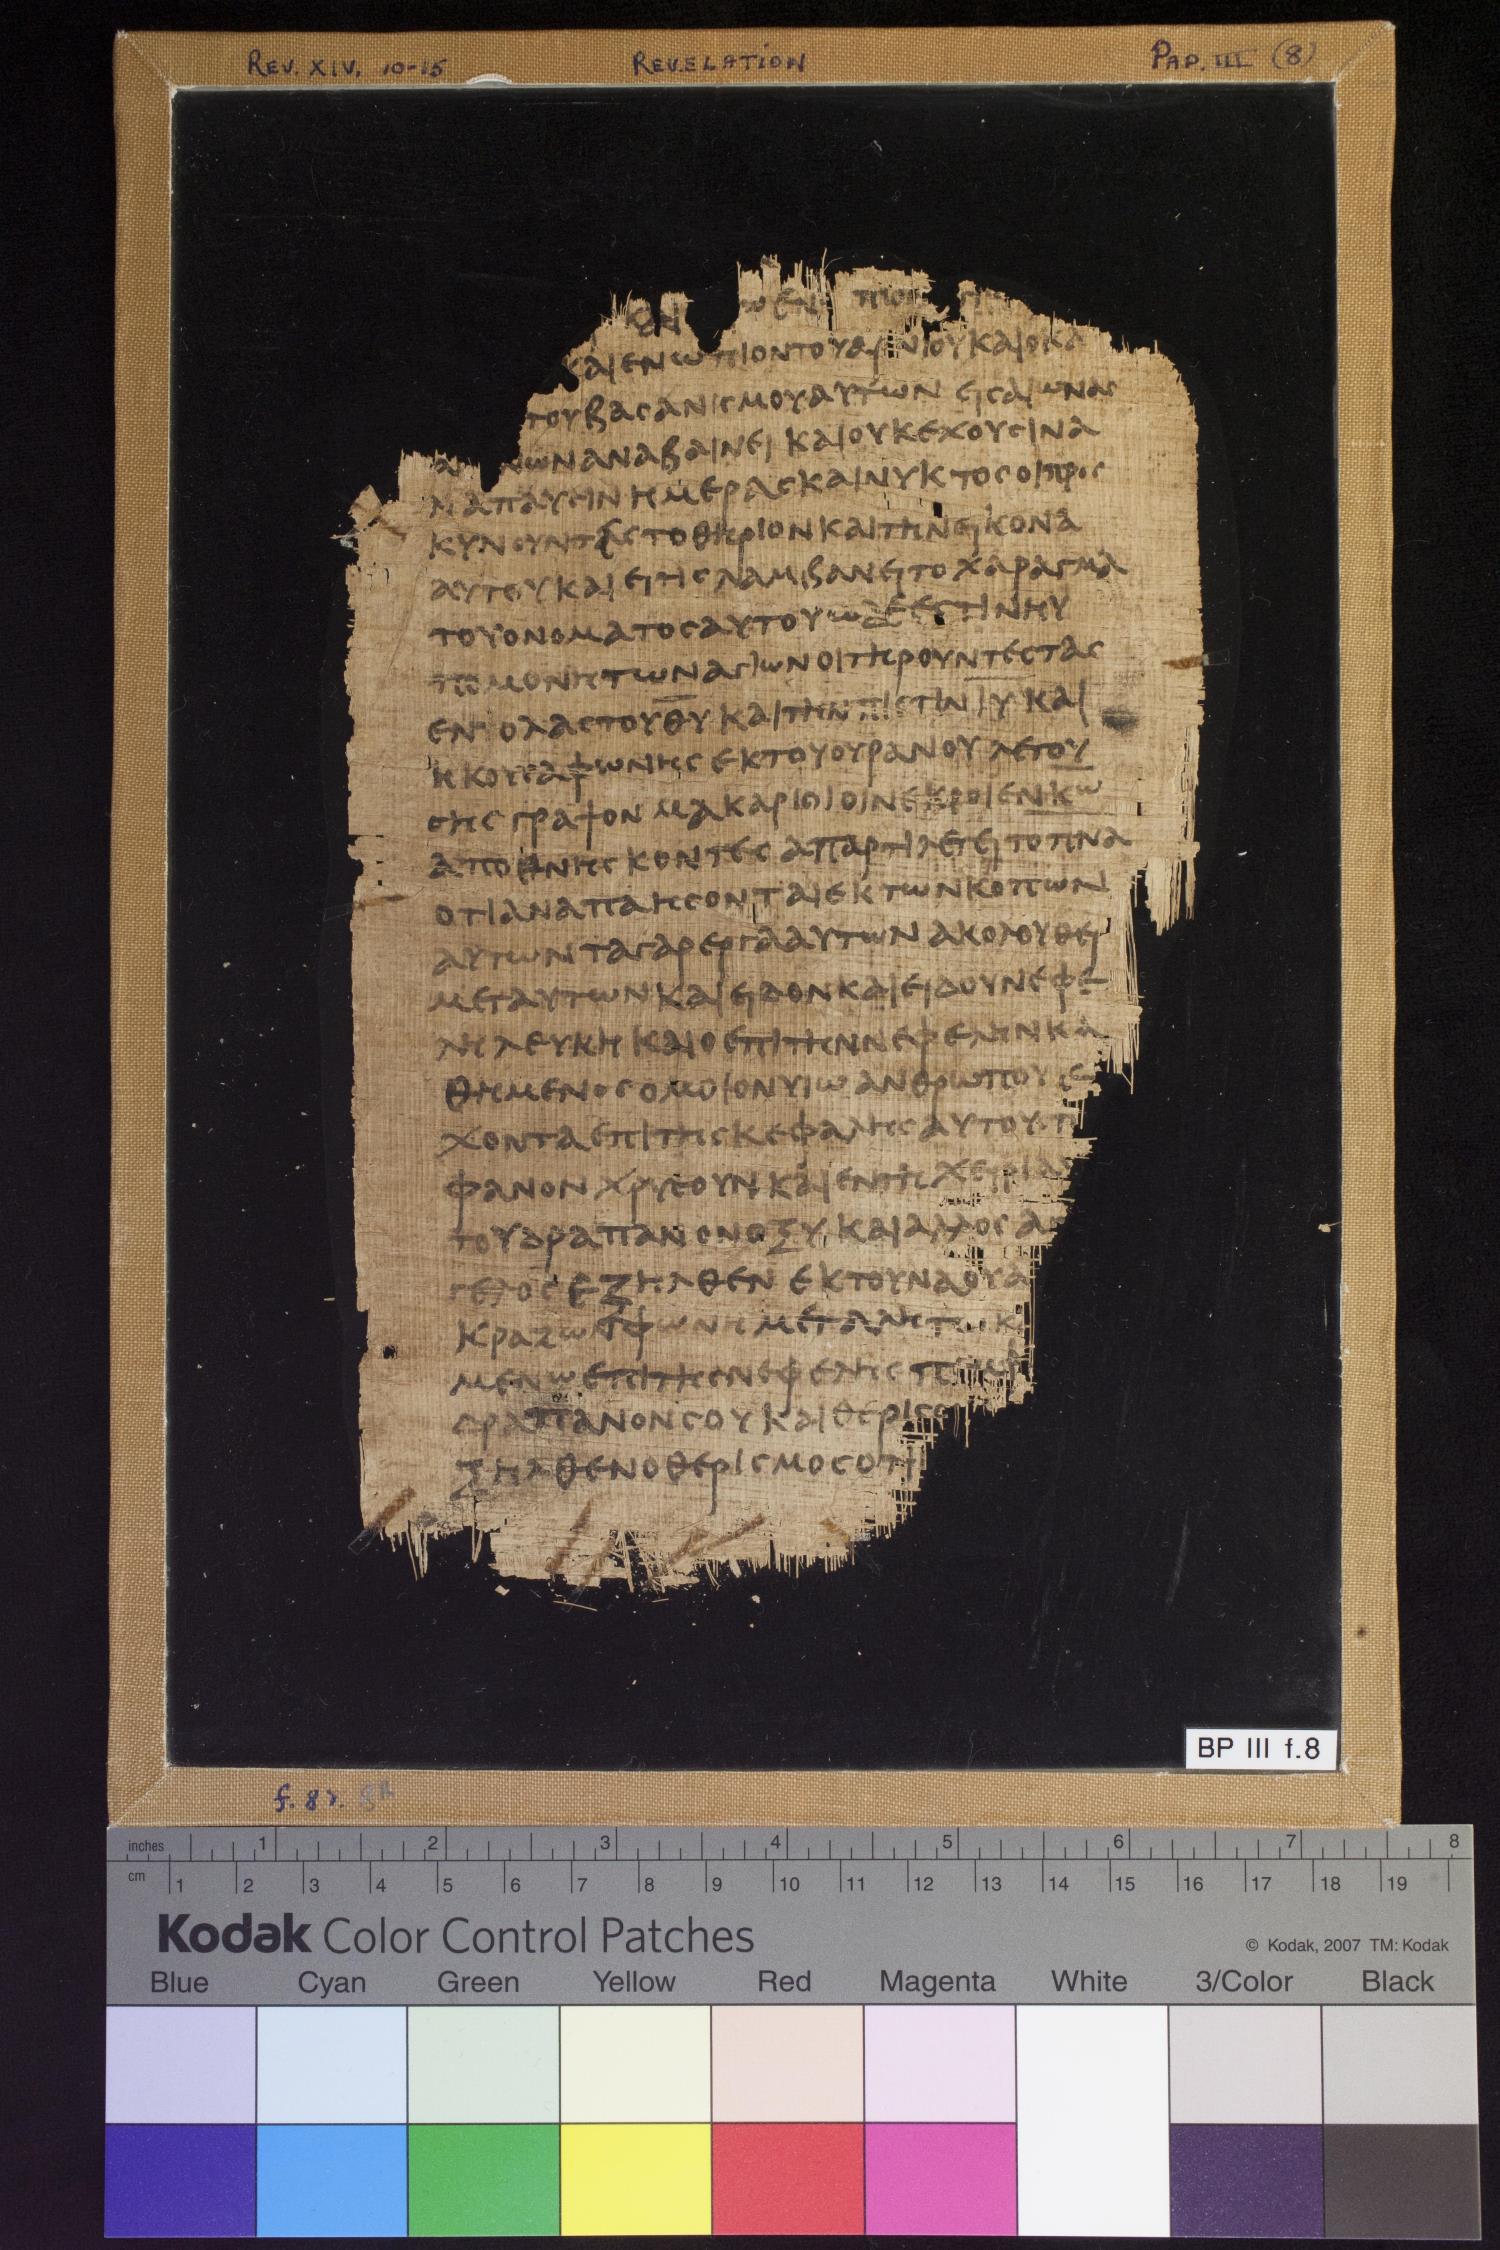 REV. XIV. 10-15 REVELATION PAP. III (8)
και ενωπιον του αρνιου και ο κα
του βασανισμου αυτων εις αιωνας
αναβαινει και ουκ εχουσιν α
ναπαυσιν ημερας και νυκτος οι προς
κυνουντες το θηριον και την εικονα
αυτου και ει τις λαμβανει το χαραγμα
του ονοματος αυτου ωδε εστιν η υ
πομονη των αγιων οι τηρουντες τας
εντολας του θυ και την πιστιν ιυ και
ηκουσα φωνης εκ του ουρανου λεγου
σης γραψον μακαριοι οι νεκροι εν κω
αποθνησκοντες απαρτι λεγει το πνα
οτι αναπαησονται εκ των κοπων
αυτων τα γαρ εργα αυτων ακολουθει
μετ αυτων και ειδον και ειδου νεφε
λη λευκη και ο επι την νεφελην κα
θημενος ομοιον υιω ανθρωπου ε
χοντα επι της κεφαλης αυτου
φανον χρυσουν και εν τη χειρι
του δραπανον οξυ και αλλος αν
γελος εξηλθεν εκ του ναου
κραζων φωνη μεγαλη
μενω επι της νεφελης
δραπανον σου και θερισο
ξηλθεν ο θερισμος οτι
BP III f.8
f. 8 r. 8R
inches 1 2 3 4 5 6 7 8
cm 1 2 3 4 5 6 7 8 9 10 11 12 13 14 15 16 17 18 19
Kodak Color Control Patches © Kodak, 2007 TM: Kodak
Blue Cyan Green Yellow Red Magenta White 3/Color Black